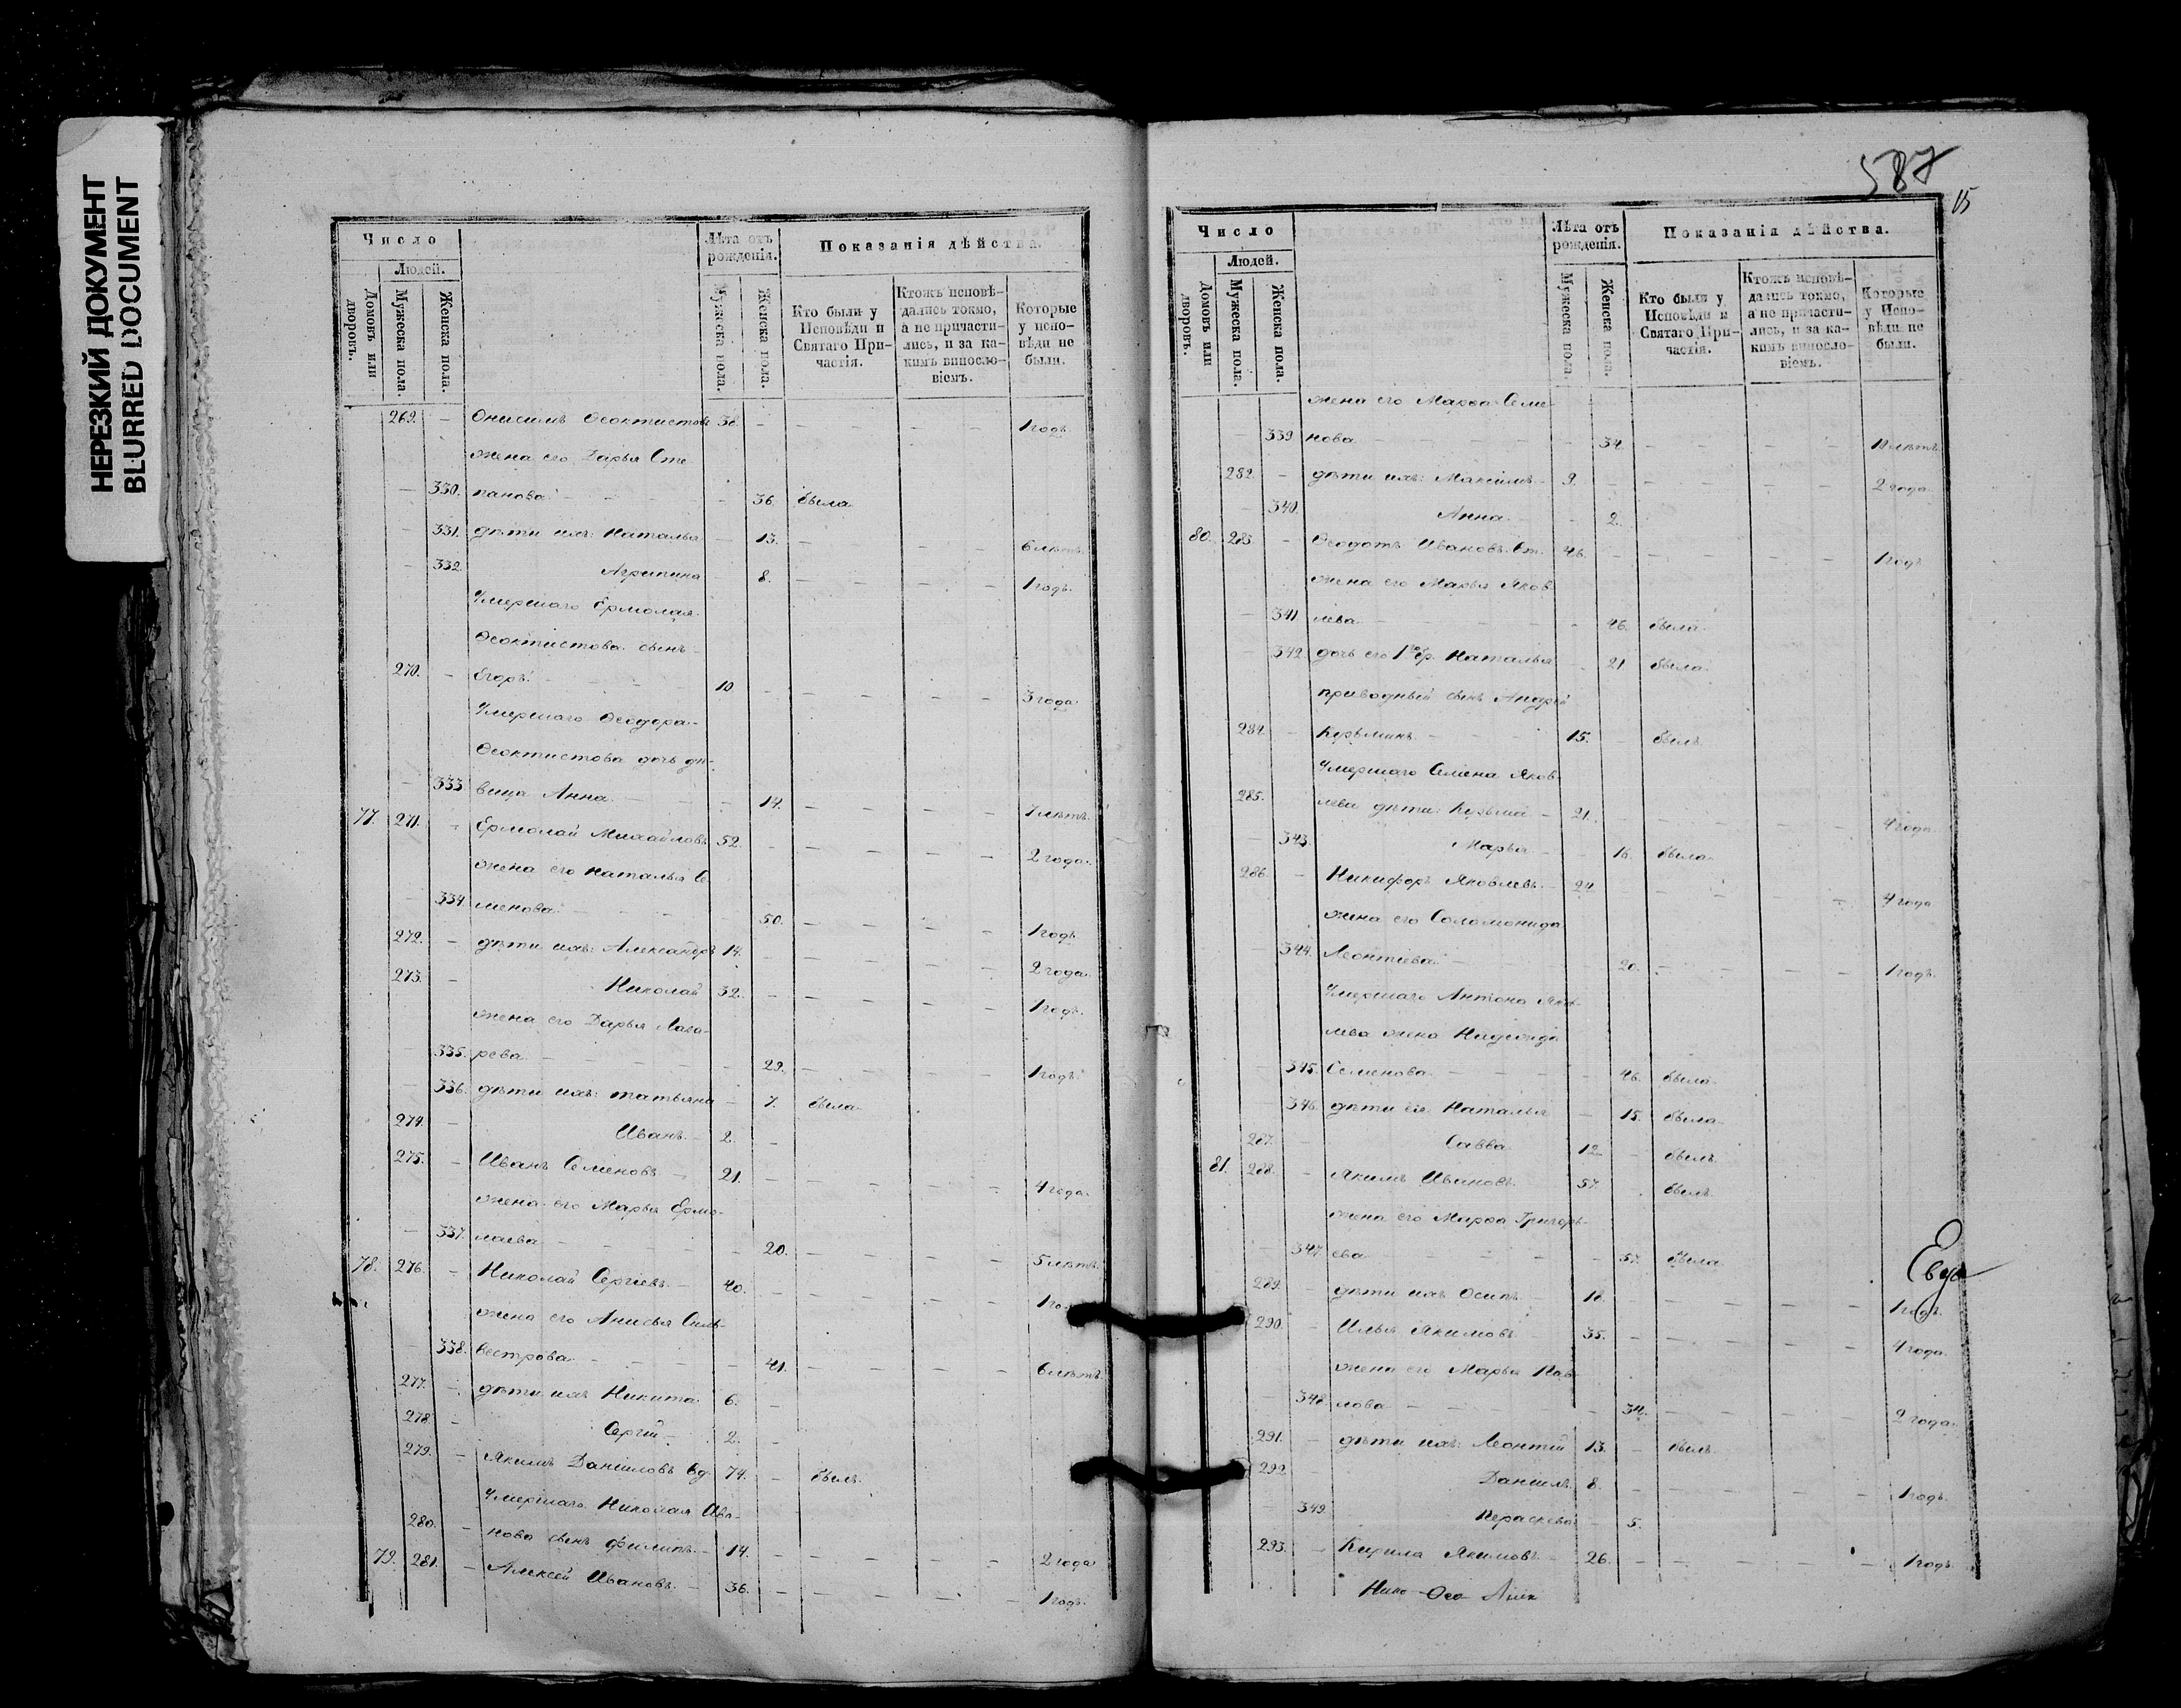 НЕРЕЗКИЙ ДОКУМЕНТ
BLURRED DOCUMENT
Число
Людей.
Домовъ или дворовъ.
Мужеска пола.
Женска пола.
Лѣта отъ рожденія.
Мужеска пола.
Женска пола.
Показанія дѣйства.
Кто были у Исповѣди и Святаго Причастія.
Ктожъ исповѣдались токмо, а не причастились, и за какимъ винословіемъ.
Которые у исповѣди не были.
269. — Онисимъ Ѳеоктистовъ 38. — — — — 1 годъ.
жена его Дарья Сте
— 330. панова — — — 36. была
— 331. дѣти ихъ: Наталья — 13. — — — 6 лѣтъ.
— 332. Агрипина — 8. — — — — 1 годъ.
Умершаго Ермолая
Ѳеоктистова сынъ
270. — Егоръ — — — 10. — — — — 3 года
Умершаго Ѳеодора
Ѳеоктистова дочь дѣ-
— 333 вица Анна — — — 14. — — — 7 лѣтъ.
77. 271. — Ермолай Михайловъ 52. — — — — 2 года.
жена его Наталья Се
334. менова — — — 50. — — — — 1 годъ
272. — дѣти ихъ: Александръ 14. — — — — 2 года.
273. — Николай 32. — — — — 1 годъ.
жена его Дарья Лаза-
— 335. рева — — — 29. — — — — 1 годъ.
— 336. дѣти ихъ: Татьяна — 7. была
274. — Иванъ — 2. —
275. — Иванъ Семеновъ — 21. — — — — 4 года.
жена его Марья Ермо-
— 337. лаева — — — 20. — — — — 5 лѣтъ
78. 276. — Николай Сергіевъ — 40. — — — — 1 го
жена его Анисья Силь-
— 338. вестрова — — — 41. — — — — 6 лѣтъ
277. — дѣти ихъ Никита 6. —
278. — Сергій — 2. —
279. — Якимъ Даниловъ вд. 74. — былъ
Умершаго Николая Ива-
280. — нова сынъ Филипъ — 14. — — — — 2 года
79. 281. — Алексей Ивановъ — 36. — — — — 1 годъ
587
15
Число
Людей.
Домовъ или дворовъ.
Мужеска пола.
Женска пола.
Лѣта отъ рожденія.
Мужеска пола.
Женска пола.
Показанія дѣйства.
Кто были у Исповѣди и Святаго Причастія.
Ктожъ исповѣдались токмо, а не причастились, и за какимъ винословіемъ.
Которые у Исповѣди не были.
жена его Марѳа Семе-
— 339 нова — — — 34. — — — —
282. — дѣти ихъ: Максимъ — 9. — — — — 2 года
— 340. Анна — — 2.
80. 283. — Ѳеодотъ Ивановъ 46. — — — — 1 годъ
жена его Марья Яков-
— 341 лева — — — 46. была
— 342. дочь его 1го бр. Наталья — 21 была
приводный сынъ Андрей
284. — Кузьминъ — — 15. — былъ
Умершаго Семена Яков-
285. лева дѣти: Кузьма — 21. — — — 4 года
— 343. Марья — — 16. была
286. — Никифоръ Яковлевъ — 24. — — — — 4 года
жена его Соломонида
— 344. Леонтіева — — — 20. — — — — 1 годъ.
Умершаго Антона Яков-
лева жена Надежда
— 345. Семенова — — — 46. была
— 346. дѣти ея Наталья — 15. была
287. — Савва 12 — былъ
81. 288. — Якимъ Ивановъ 57. былъ
жена его Марѳа Григорь-
— 347. ева — — — 57. была
Евдо
289. — дѣти ихъ Осипъ — 18. — — — — 1 годъ.
290. — Илья Якимовъ — 35. — — — — 4 года.
жена его Марья Пав-
— 348. лова — — — 34. — — — — 2 года.
291. — дѣти ихъ: Леонтій 13. — былъ
292 — Даниилъ 8. — — — — 1 годъ.
— 349. Пераскева — 5.
293. — Кирила Якимовъ — 26. — — — — 1 годъ.
Нико-Ѳео-